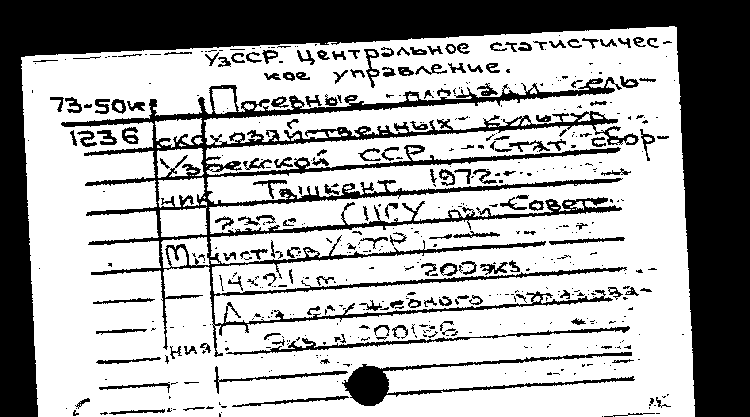 УзССР. Центральное статистичес-
кое управление.
73-50к Посевные площади сель-
1236 скохозяйственных культур
Узбекской ССР. Стат. сбор-
ник. Ташкент, 1972.
232с (ЦСУ при Совете
Министров УзССР).
14х21см 200экз.
Для служебного пользова-
ния. Экз. N 000186